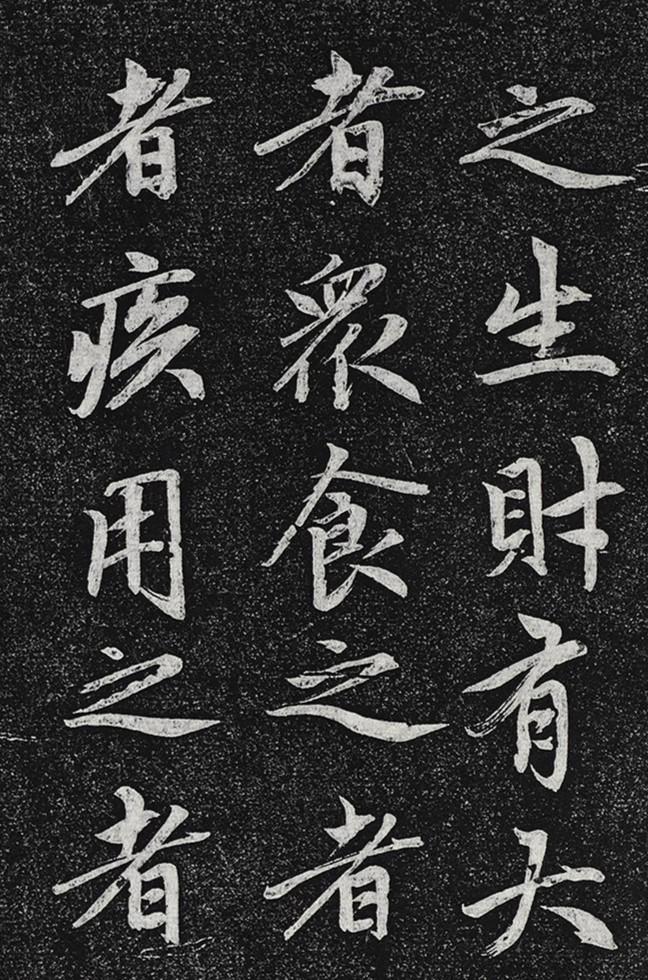 之生財有大
者眾食之者
者疾用之者